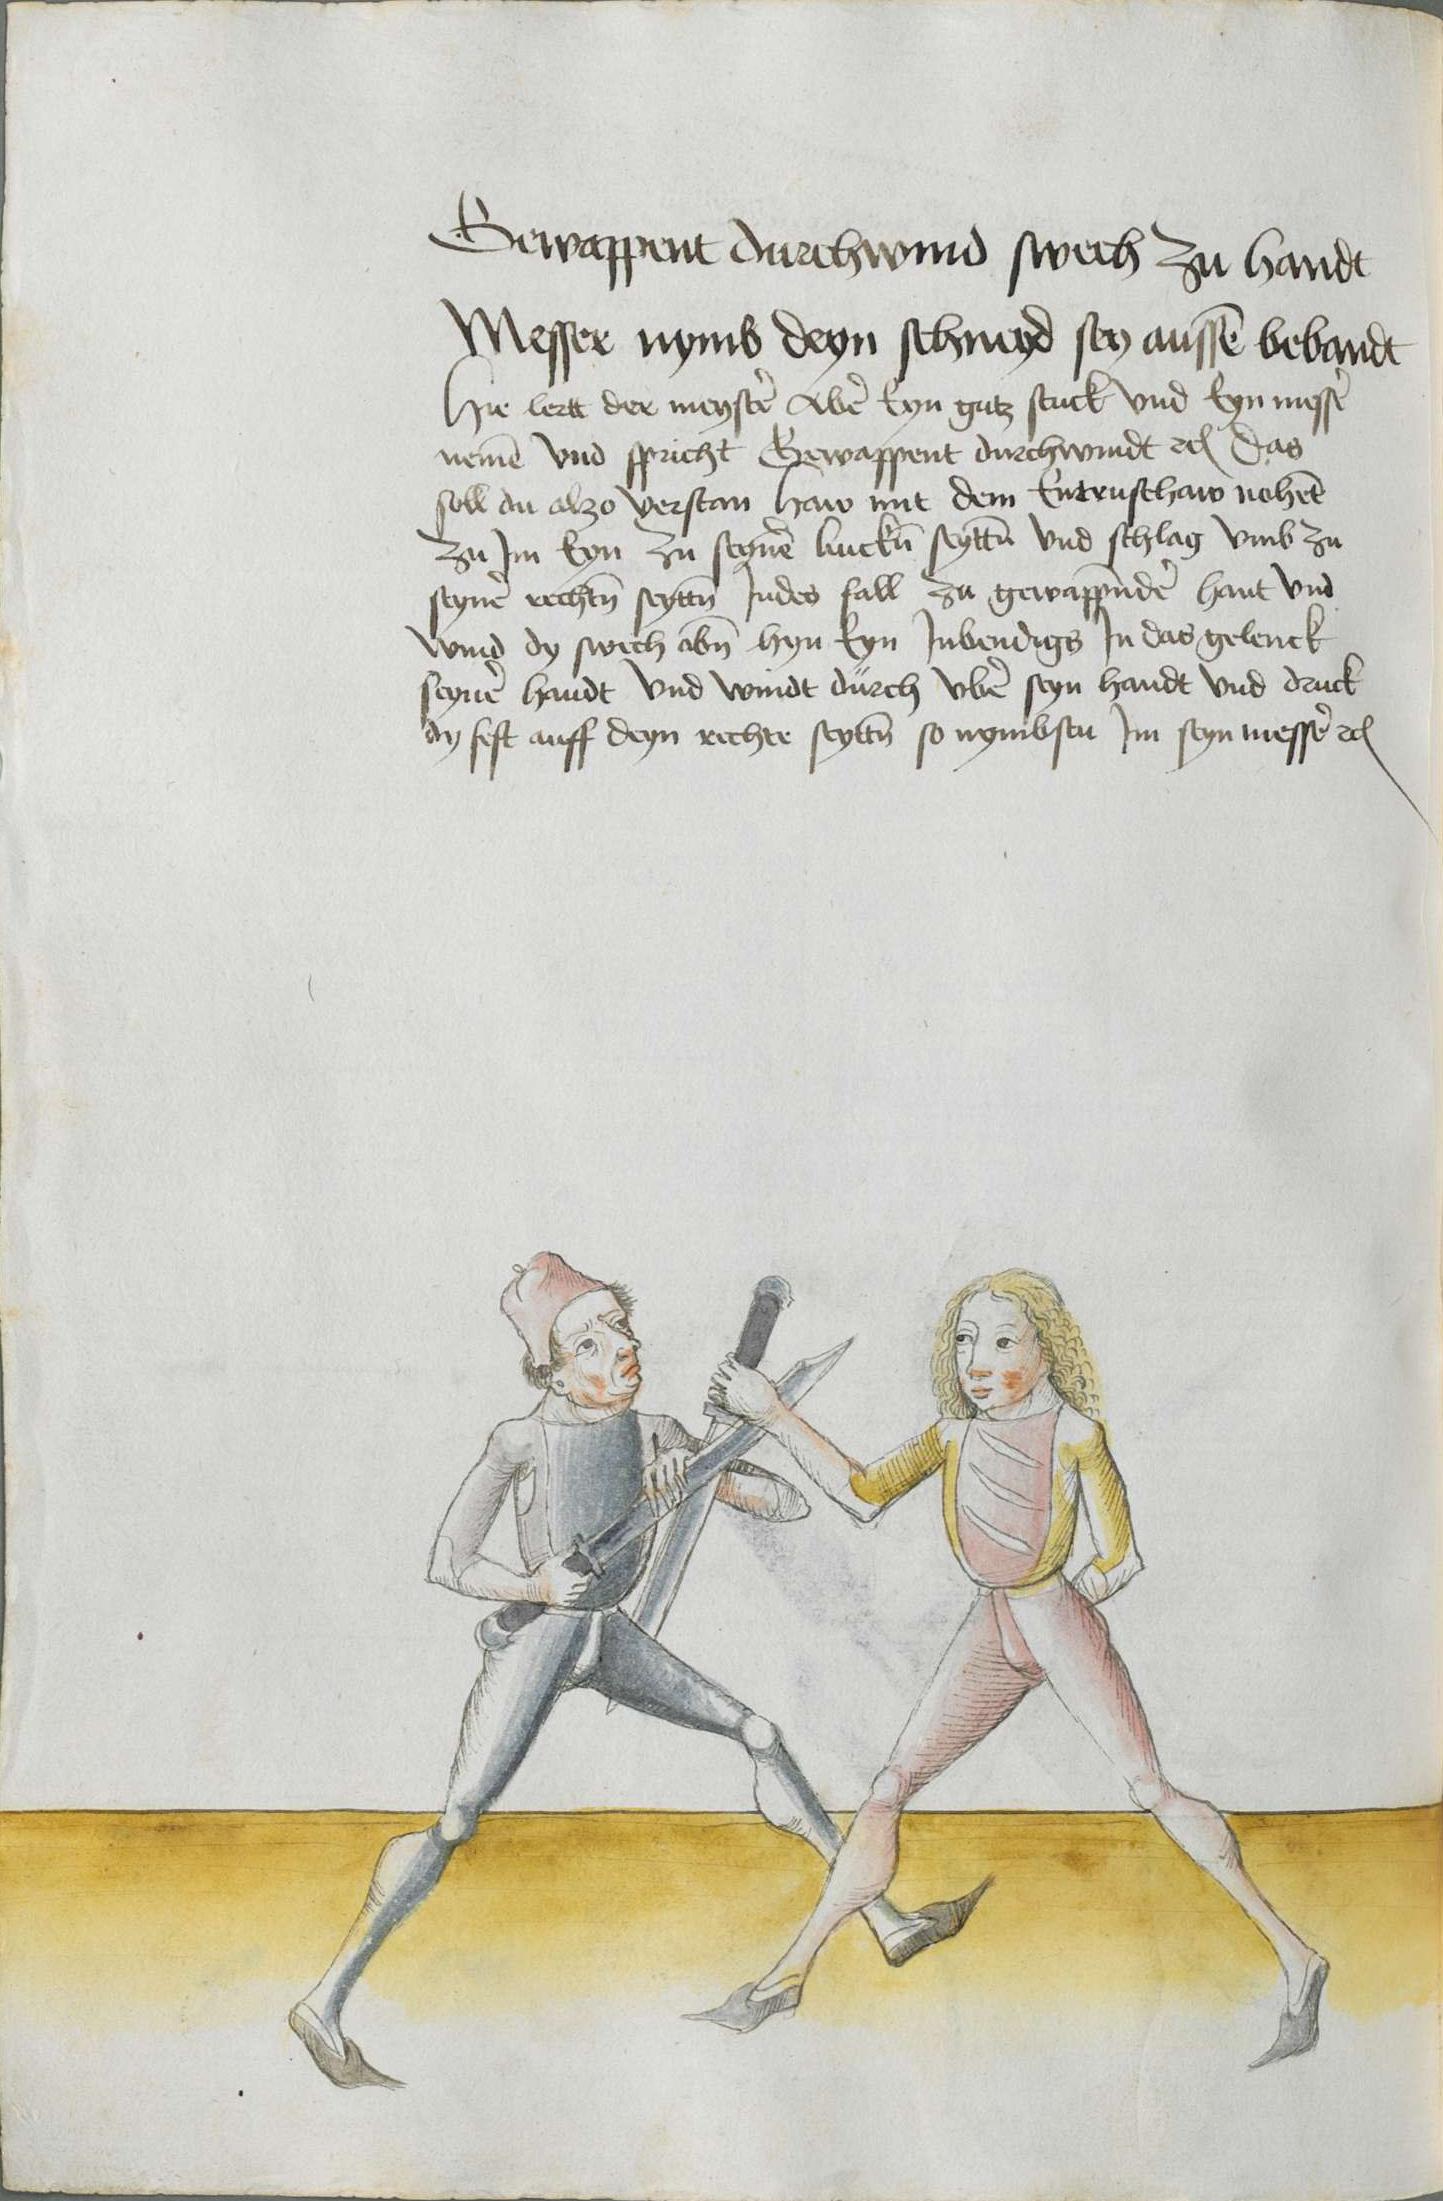 Gewappent durchwind swech zu handt
Messer nymb deyn schneyd sey aussē behandt
Hie lertt der meyster̄ Aber̄ Eyn gutz stuck vnd Eyn messer̄
nemē vnd spricht Gewappent durchwindt ꝛcꝭ Das
soll du alzo verstan Haw mit dem Entrusthaw nohet̄
zu Im Eyn zu seyner̄ linckn̄ seyttn̄ vnd schlag vmb zu
seyner̄ rechtn̄ seyttn̄ Indes fall zu gewappender̄ hant vnd
wind dy swech obn̄ hyn Eyn Inbendigs In das gelenck
seyner̄ handt vnd windt durch vber̄ seyn handt vnd druck
dy fest auff deyn rechte seyttn̄ so nymbstu Im seyn messer̄ ꝛcꝭ